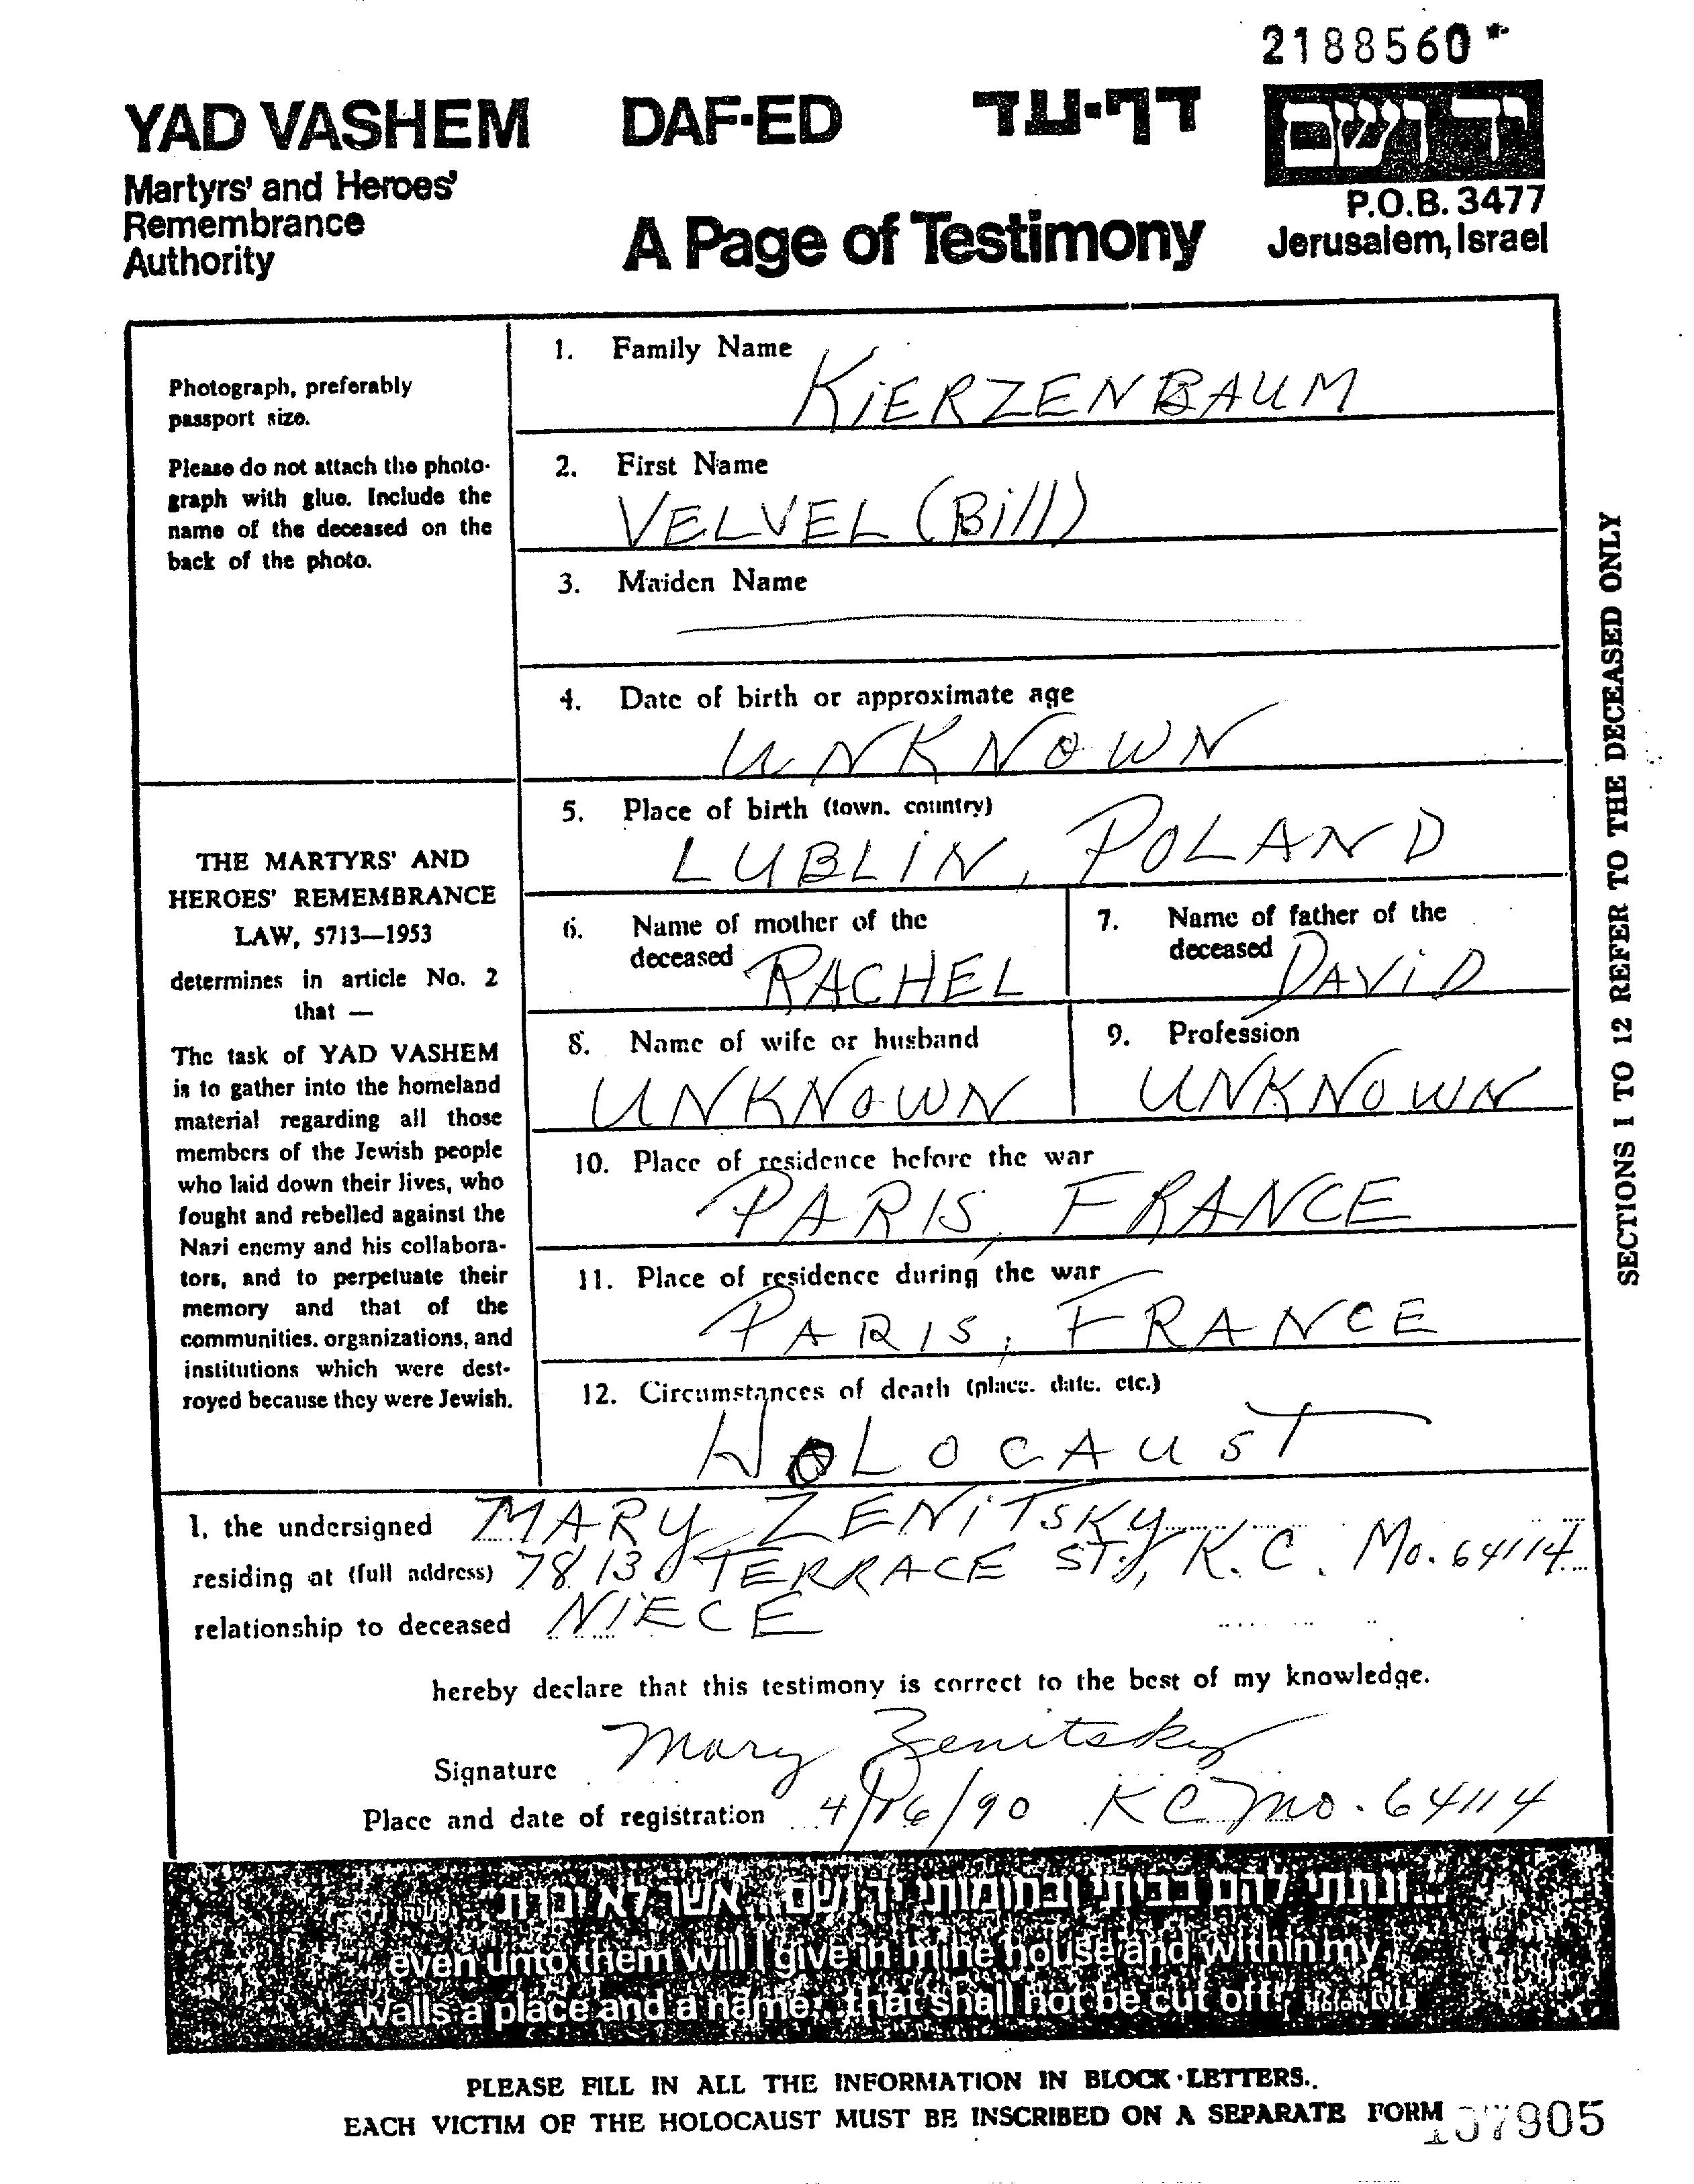 2188560*
YAD VASHEM DAF-ED דף-עד יד ושם
Martyrs' and Heroes'
Remembrance
Authority
A Page of Testimony
P.O.B. 3477
Jerusalem, Israel
Photograph, preferably
passport size.
Please do not attach the photo-
graph with glue. Include the
name of the deceased on the
back of the photo.
THE MARTYRS' AND
HEROES' REMEMBRANCE
LAW, 5713—1953
determines in article No. 2
that —
The task of YAD VASHEM
is to gather into the homeland
material regarding all those
members of the Jewish people
who laid down their lives, who
fought and rebelled against the
Nazi enemy and his collabora-
tors, and to perpetuate their
memory and that of the
communities, organizations, and
institutions which were dest-
royed because they were Jewish.
1. Family Name
KiERZENBAUM
2. First Name
VELVEL (Bill)
3. Maiden Name
4. Date of birth or approximate age
UNKNOWN
5. Place of birth (town, country)
LUBLIN, POLAND
6. Name of mother of the
deceased RACHEL
7. Name of father of the
deceased DAViD
8. Name of wife or husband
UNKNOWN
9. Profession
UNKNOWN
10. Place of residence before the war
PARIS, FRANCE
11. Place of residence during the war
PARIS, FRANCE
12. Circumstances of death (place, date, etc.)
HOLOCAUST
SECTIONS 1 TO 12 REFER TO THE DECEASED ONLY
I, the undersigned MARY ZENiTSKY
residing at (full address) 7813 TERRACE ST., K.C. Mo. 64114
relationship to deceased NIECE
hereby declare that this testimony is correct to the best of my knowledge.
Signature Mary Zenitsky
Place and date of registration 4/16/90 KC Mo. 64114
...ונתתי להם בביתי ובחומותי יד ושם...אשר לא יכרת
even unto them will I give in mine house and within my
walls a place and a name...that shall not be cut off."
PLEASE FILL IN ALL THE INFORMATION IN BLOCK LETTERS.
EACH VICTIM OF THE HOLOCAUST MUST BE INSCRIBED ON A SEPARATE FORM